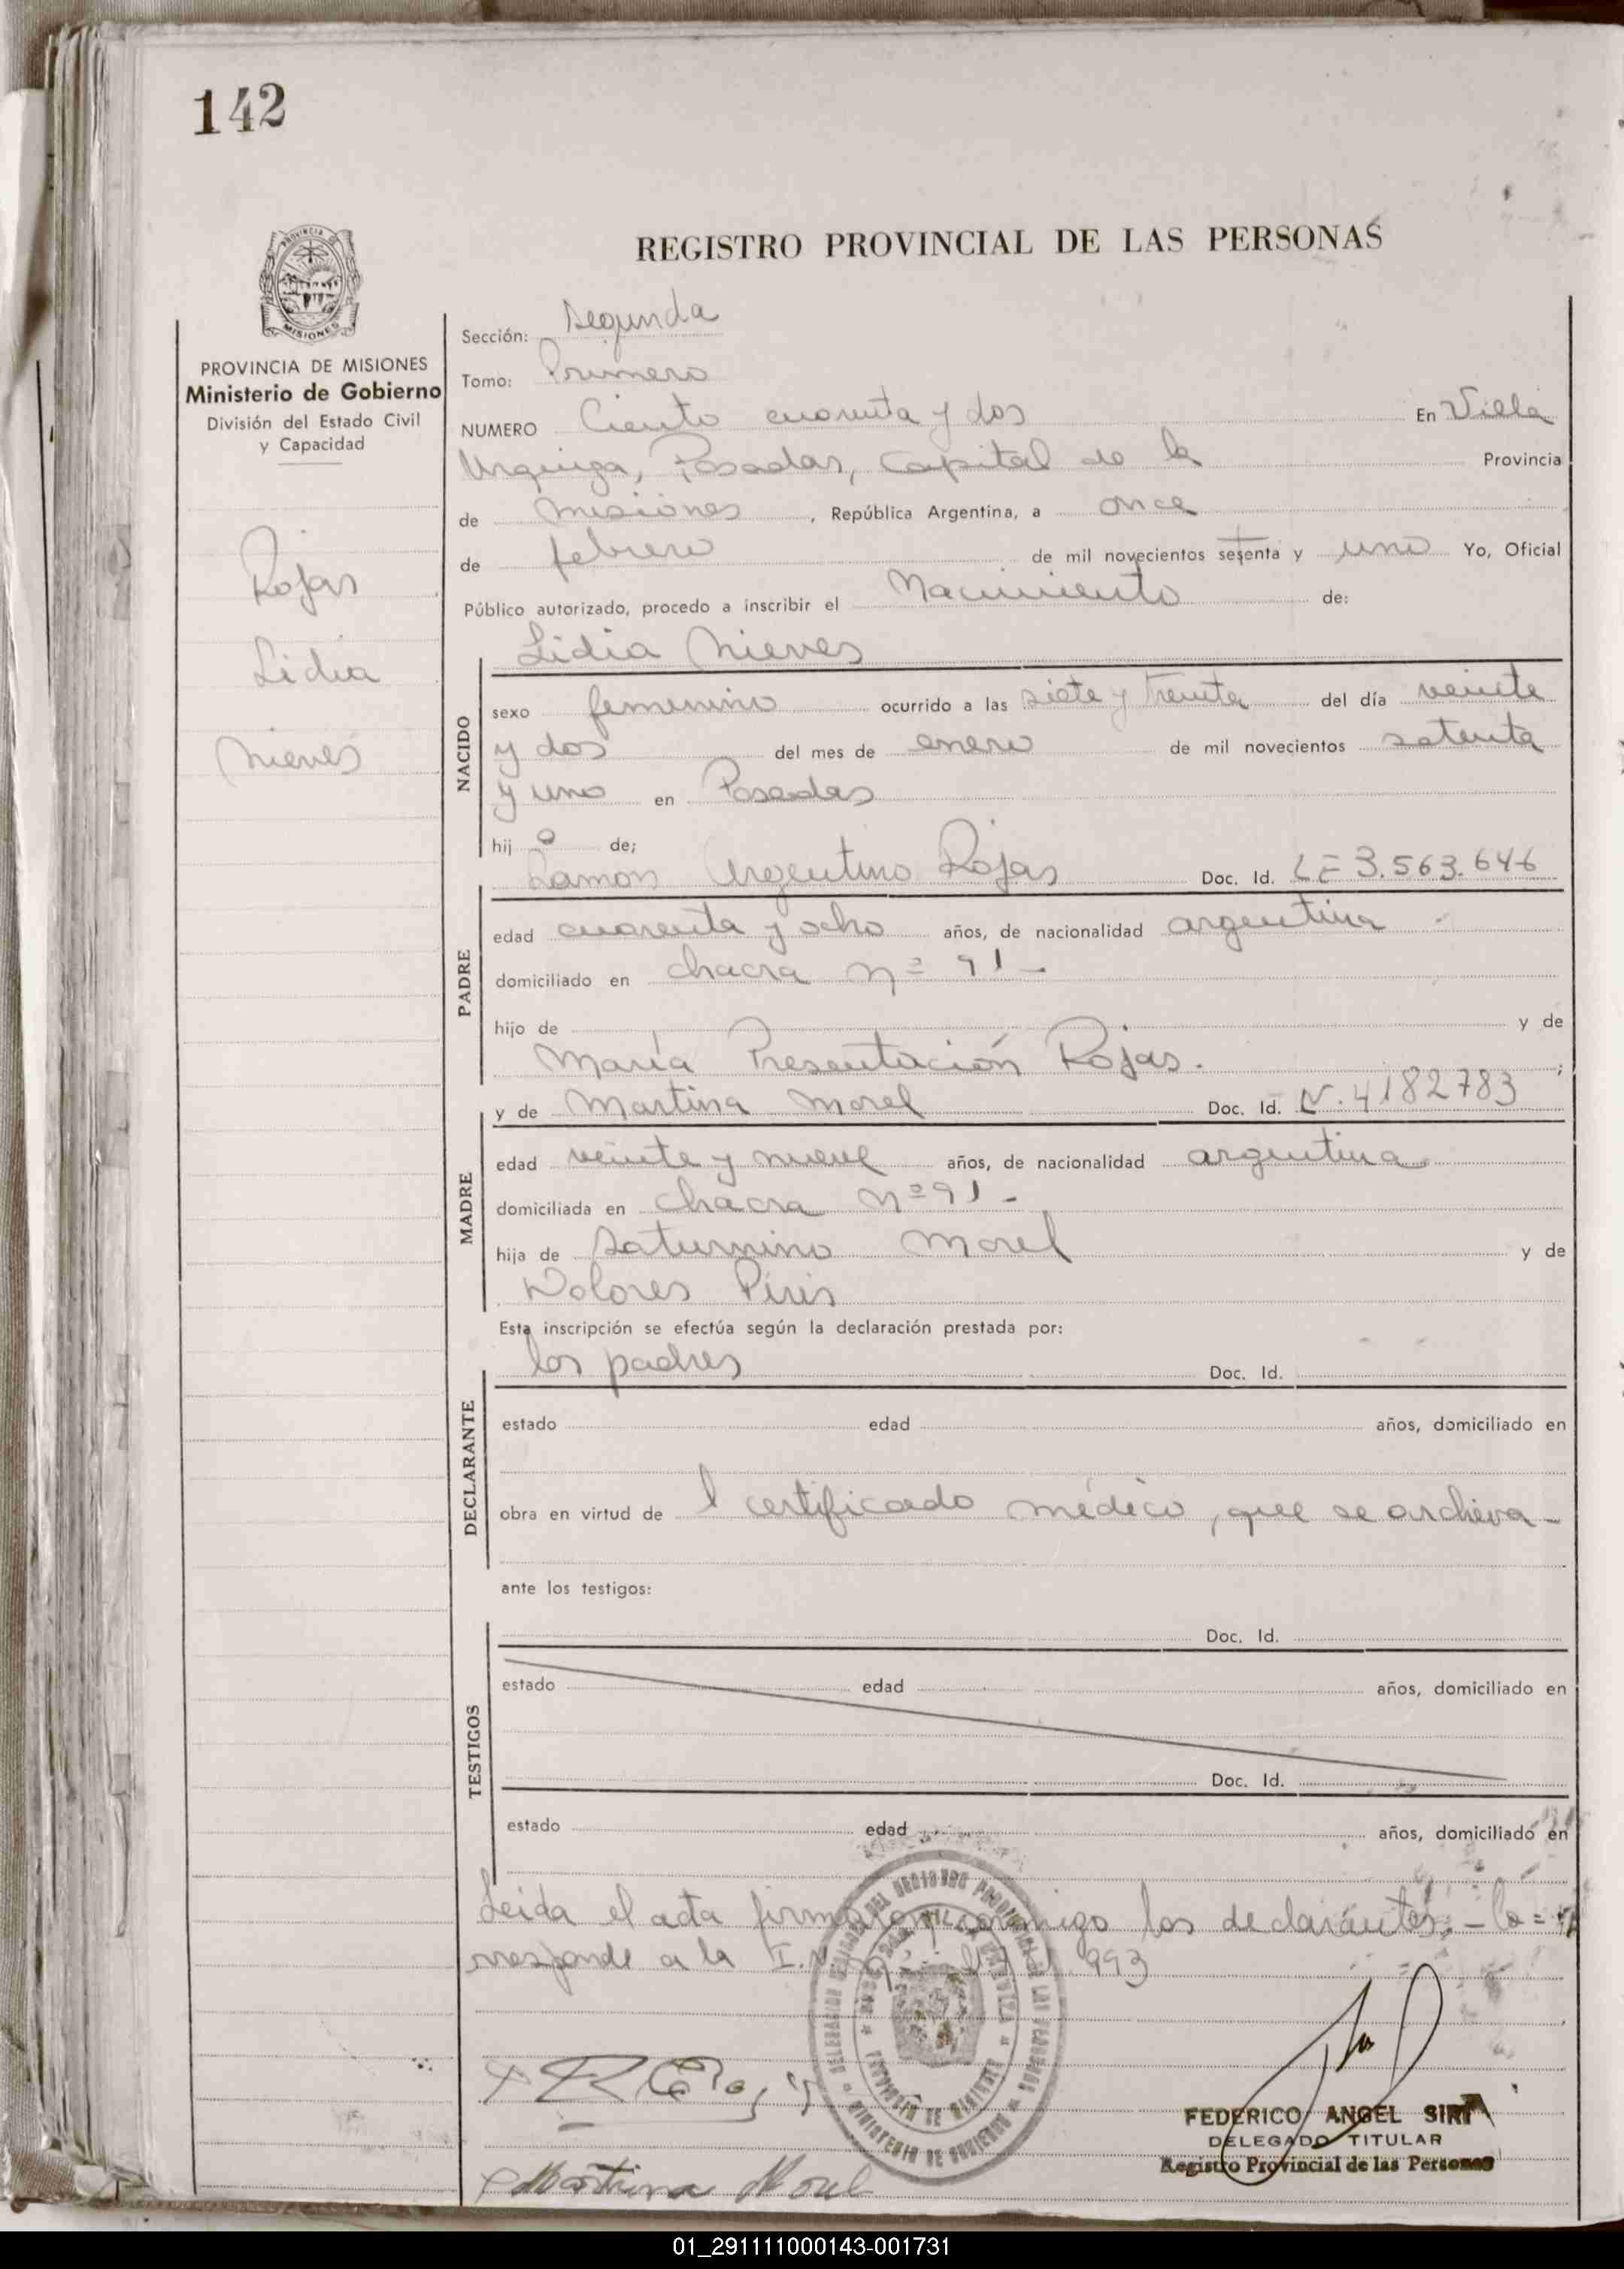 142
PROVINCIA DE
MISIONES
PROVINCIA DE MISIONES
Ministerio de Gobierno
División del Estado Civil
y Capacidad
Rojas
Lidia
Nieves
REGISTRO PROVINCIAL DE LAS PERSONAS
Sección: Segunda
Tomo: Primero
NUMERO Ciento cuarenta y dos En Villa
Urquiza, Posadas, Capital de la Provincia
de Misiones , República Argentina, a once
de febrero de mil novecientos setenta y uno Yo, Oficial
Público autorizado, procedo a inscribir el Nacimiento de:
Lidia Nieves
NACIDO
sexo femenino ocurrido a las siete y treinta del día veinte
y dos del mes de enero de mil novecientos setenta
y uno en Posadas
hij a de;
Ramon Argentino Rojas Doc. Id. LE 3.563.646
PADRE
edad cuarenta y ocho años, de nacionalidad argentina
domiciliado en chacra nº 91 -
hijo de y de
María Presentación Rojas. ;
y de Martina Morel Doc. Id. N. 4182783
MADRE
edad veinte y nueve años, de nacionalidad argentina
domiciliada en chacra nº 91 -
hija de Saturnino Morel y de
Dolores Piris
Esta inscripción se efectúa según la declaración prestada por:
los padres Doc. Id.
DECLARANTE
estado edad años, domiciliado en
obra en virtud de l certificado médico, que se archiva -
ante los testigos:
Doc. Id.
TESTIGOS
estado edad años, domiciliado en
Doc. Id.
estado edad años, domiciliado en
Leida el acta firmaron conmigo los declarantes. - Co=
rresponde a la 993
Martina Morel
FEDERICO ANGEL SIRI
DELEGADO TITULAR
Registro Provincial de las Personas
01_291111000143-001731